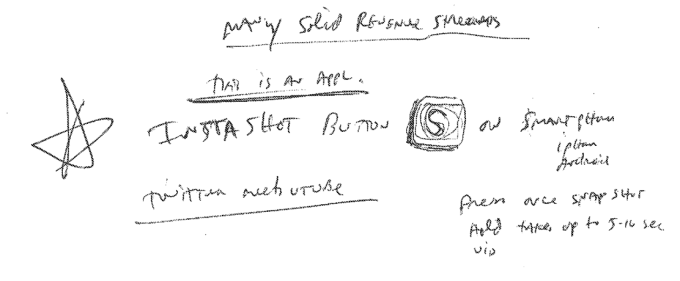 MANY Solid REVENUE STREAMS
THIS IS AN APPL.
INSTA SHOT BUTTON S ON SMARTPHONE
iphon
Android
TWITTER meets UTUBE
Press once SNAPSHOT
Hold takes up to 5-16 sec
vid